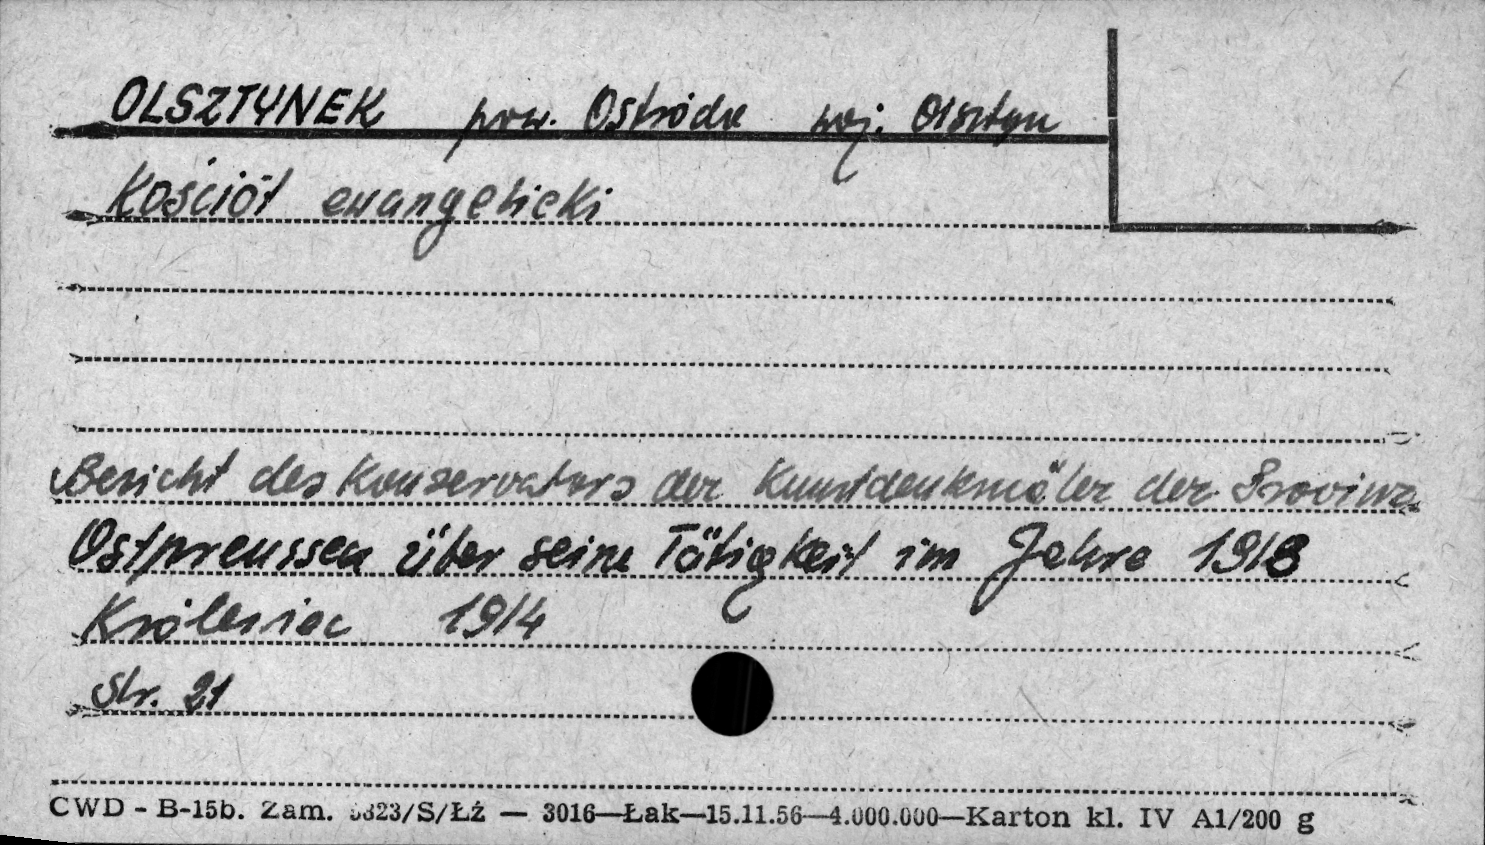 OLSZTYNEK pow. Ostróda woj. Olsztyn
Kościół ewangelicki
Bericht des Konservators der Kunstdenkmäler der Provinz
Ostpreussen über seine Tätigkeit im Jahre 1913
Królewiec 1914
Str. 21
CWD - B-15b. Zam. 323/S/Łż — 3016—Łak—15.11.56—4.000.000—Karton kl. IV A1/200 g